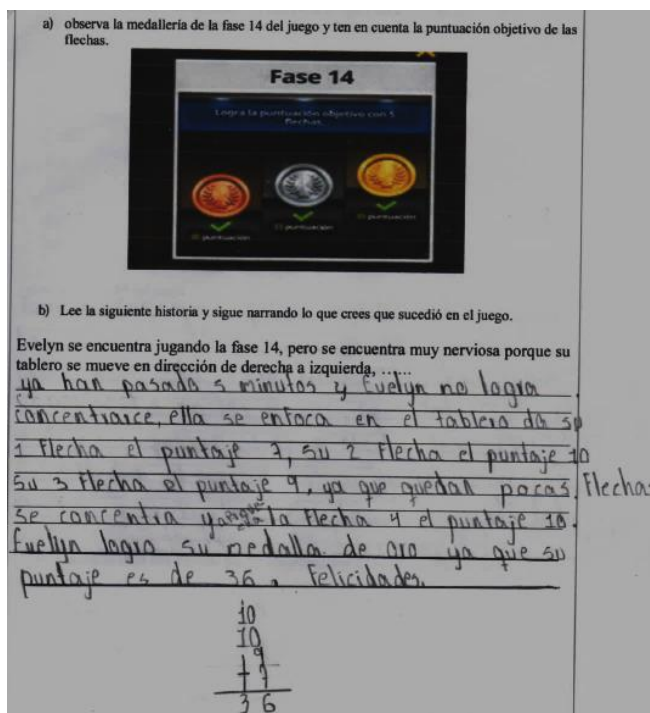 a) observa la medallería de la fase 14 del juego y ten en cuenta la puntuación objetivo de las
flechas.
Fase 14
Logra la puntuación objetivo con 5
flechas
puntuación
puntuación
puntuación
b) Lee la siguiente historia y sigue narrando lo que crees que sucedió en el juego.
Evelyn se encuentra jugando la fase 14, pero se encuentra muy nerviosa porque su
tablero se mueve en dirección de derecha a izquierda, ......
ya han pasado 5 minutos y Evelyn no logra
concentrarce, ella se enfoca en el tablero da su
1 flecha el puntaje 7, su 2 flecha el puntaje 10
su 3 flecha el puntaje 9, ya que quedan pocas flecha
se concentra y la flecha 4 el puntaje 10.
Evelyn logro su medalla de oro ya que su
puntaje es de 36. Felicidades.
10
10
9
+ 7
36